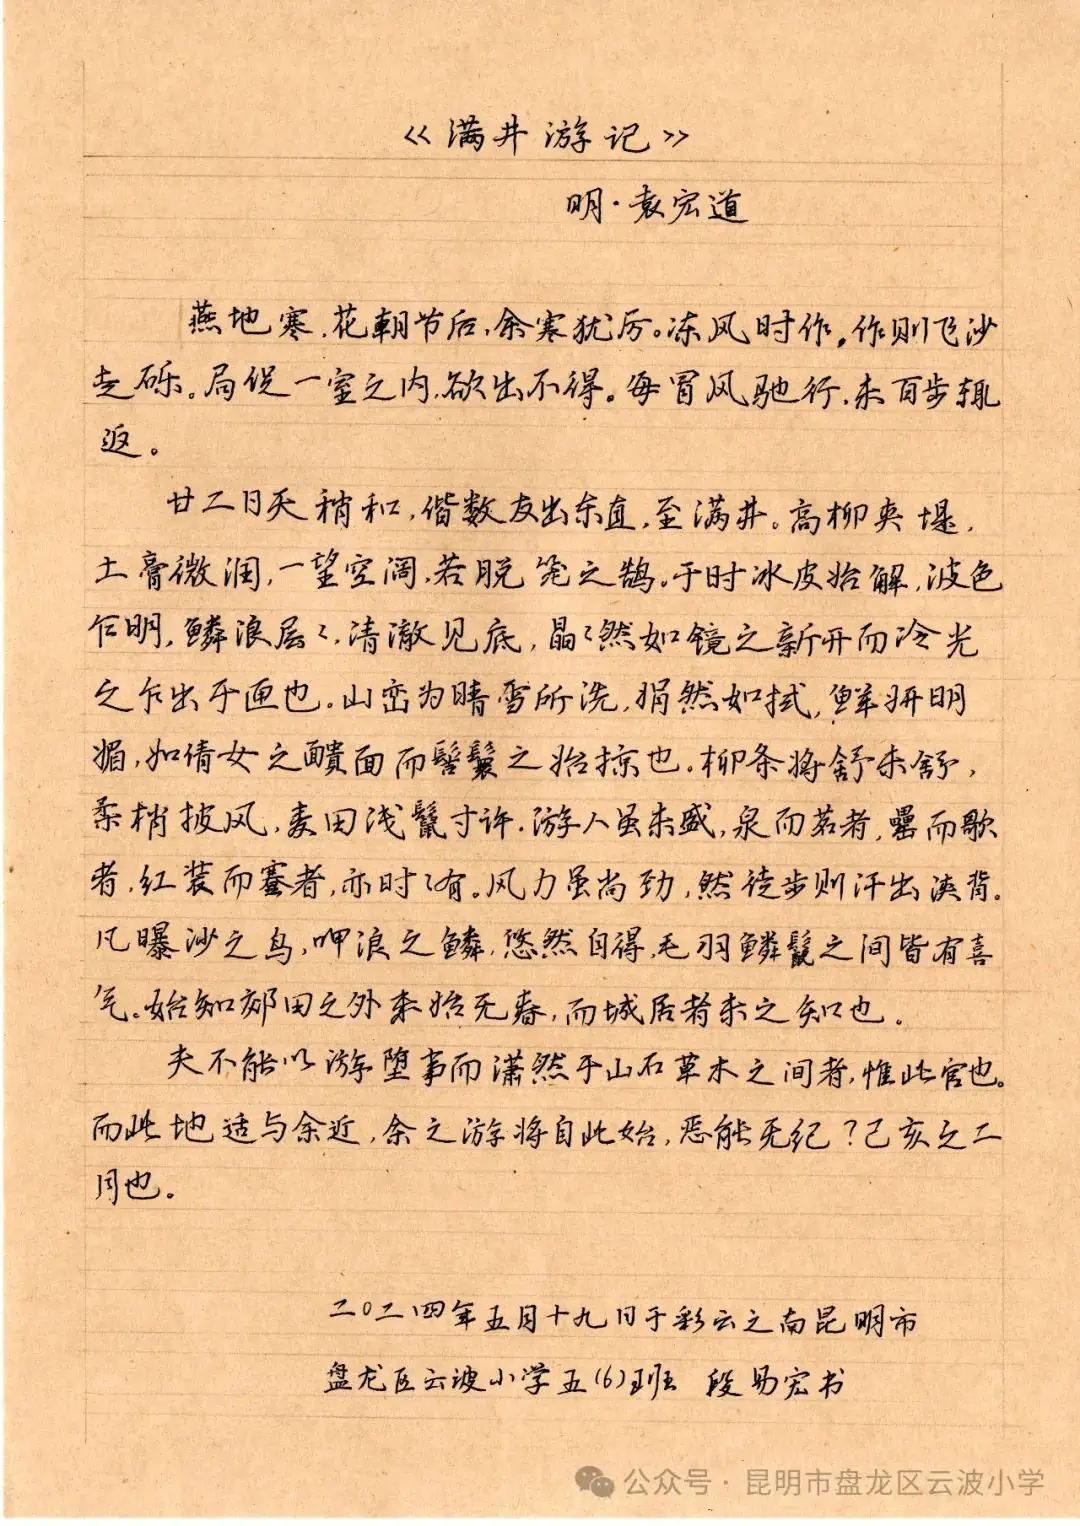 《满井游记》
明·袁宏道
燕地寒,花朝节后,余寒犹厉。冻风时作,作则飞沙
走砾。局促一室之内,欲出不得。每冒风驰行,未百步辄
返。
廿二日天稍和,偕数友出东直,至满井。高柳夹堤,
土膏微润,一望空阔,若脱笼之鹄。于时冰皮始解,波色
乍明,鳞浪层〻,清澈见底,晶〻然如镜之新开而冷光
之乍出于匣也。山峦为晴雪所洗,娟然如拭,鲜妍明
媚,如倩女之靧面而髻鬟之始掠也。柳条将舒未舒,
柔梢披风,麦田浅鬣寸许。游人虽未盛,泉而茗者,罍而歌
者,红装而蹇者,亦时〻有。风力虽尚劲,然徒步则汗出浃背。
凡曝沙之鸟,呷浪之鳞,悠然自得,毛羽鳞鬣之间皆有喜
气。始知郊田之外未始无春,而城居者未之知也。
夫不能以游堕事而潇然于山石草木之间者,惟此官也。
而此地适与余近,余之游将自此始,恶能无纪?己亥之二
月也。
二〇二四年五月十九日于彩云之南昆明市
盘龙区云波小学五(6)班 段易宏书
公众号·昆明市盘龙区云波小学